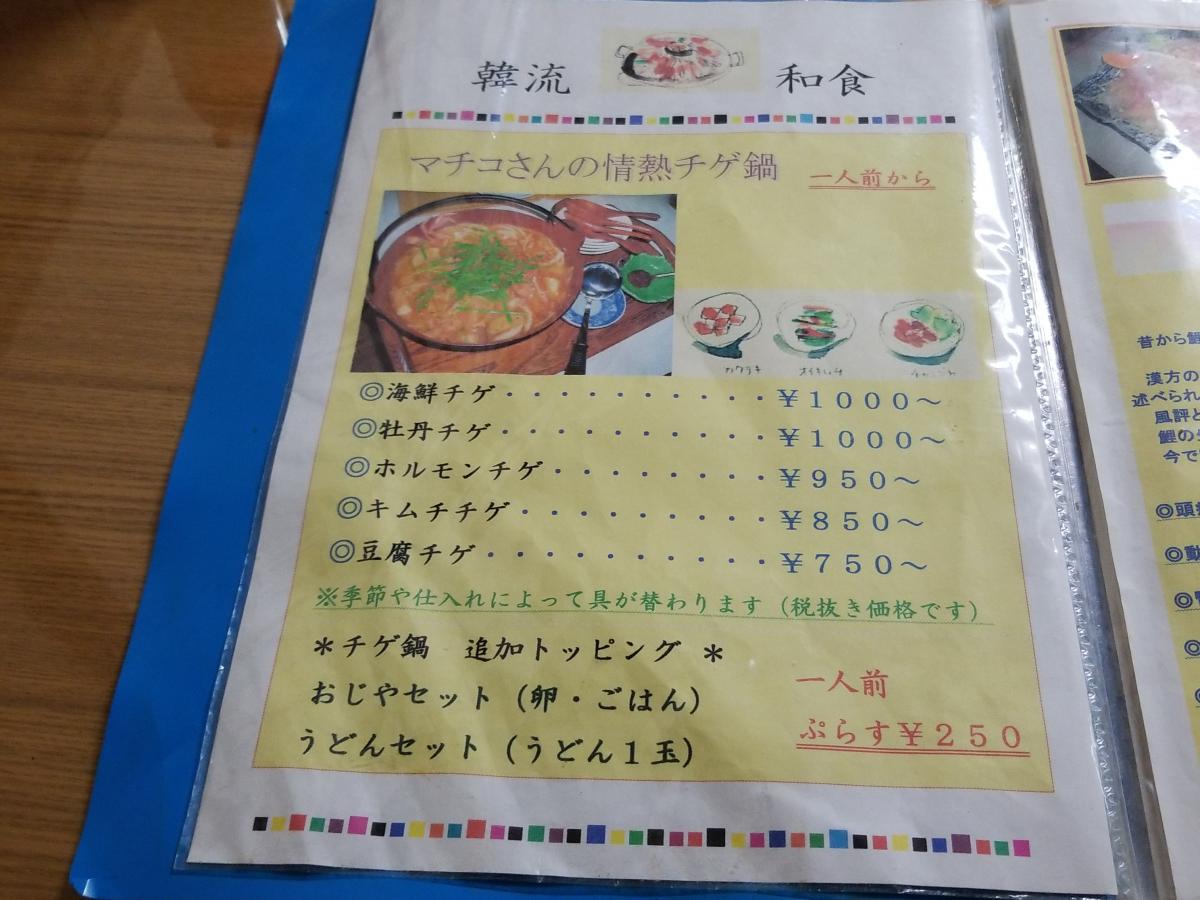 韓流 和食
マチコさんの情熱チゲ鍋 一人前から
カクテキ オイキムチ
◎海鮮チゲ・・・・・・・・・・¥1000~
◎牡丹チゲ・・・・・・・・・・¥1000~
◎ホルモンチゲ・・・・・・・・¥950~
◎キムチチゲ・・・・・・・・・¥850~
◎豆腐チゲ・・・・・・・・・・¥750~
※季節や仕入れによって具が替わります(税抜き価格です)
*チゲ鍋 追加トッピング*
おじやセット(卵・ごはん)
うどんセット(うどん1玉)
一人前
ぷらす¥250
昔から鯉
漢方の
述べられ
風評と
鯉の
今で
◎頭
◎動